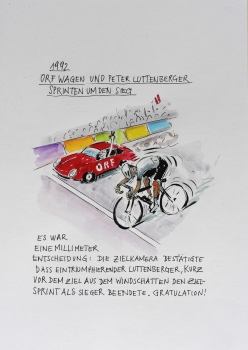 1992
ORF WAGEN UND PETER LUTTENBERGER
SPRINTEN UM DEN SIEG
ORF
ES WAR
EINE MILLIMETER
ENTSCHEIDUNG: DIE ZIELKAMERA BESTÄTIGTE
DASS EIN TRIUMPHIERENDER LUTTENBERGER, KURZ
VOR DEM ZIEL AUS DEM WINDSCHATTEN DEN ZIEL-
SPRINT ALS SIEGER BEENDETE. GRATULATION!